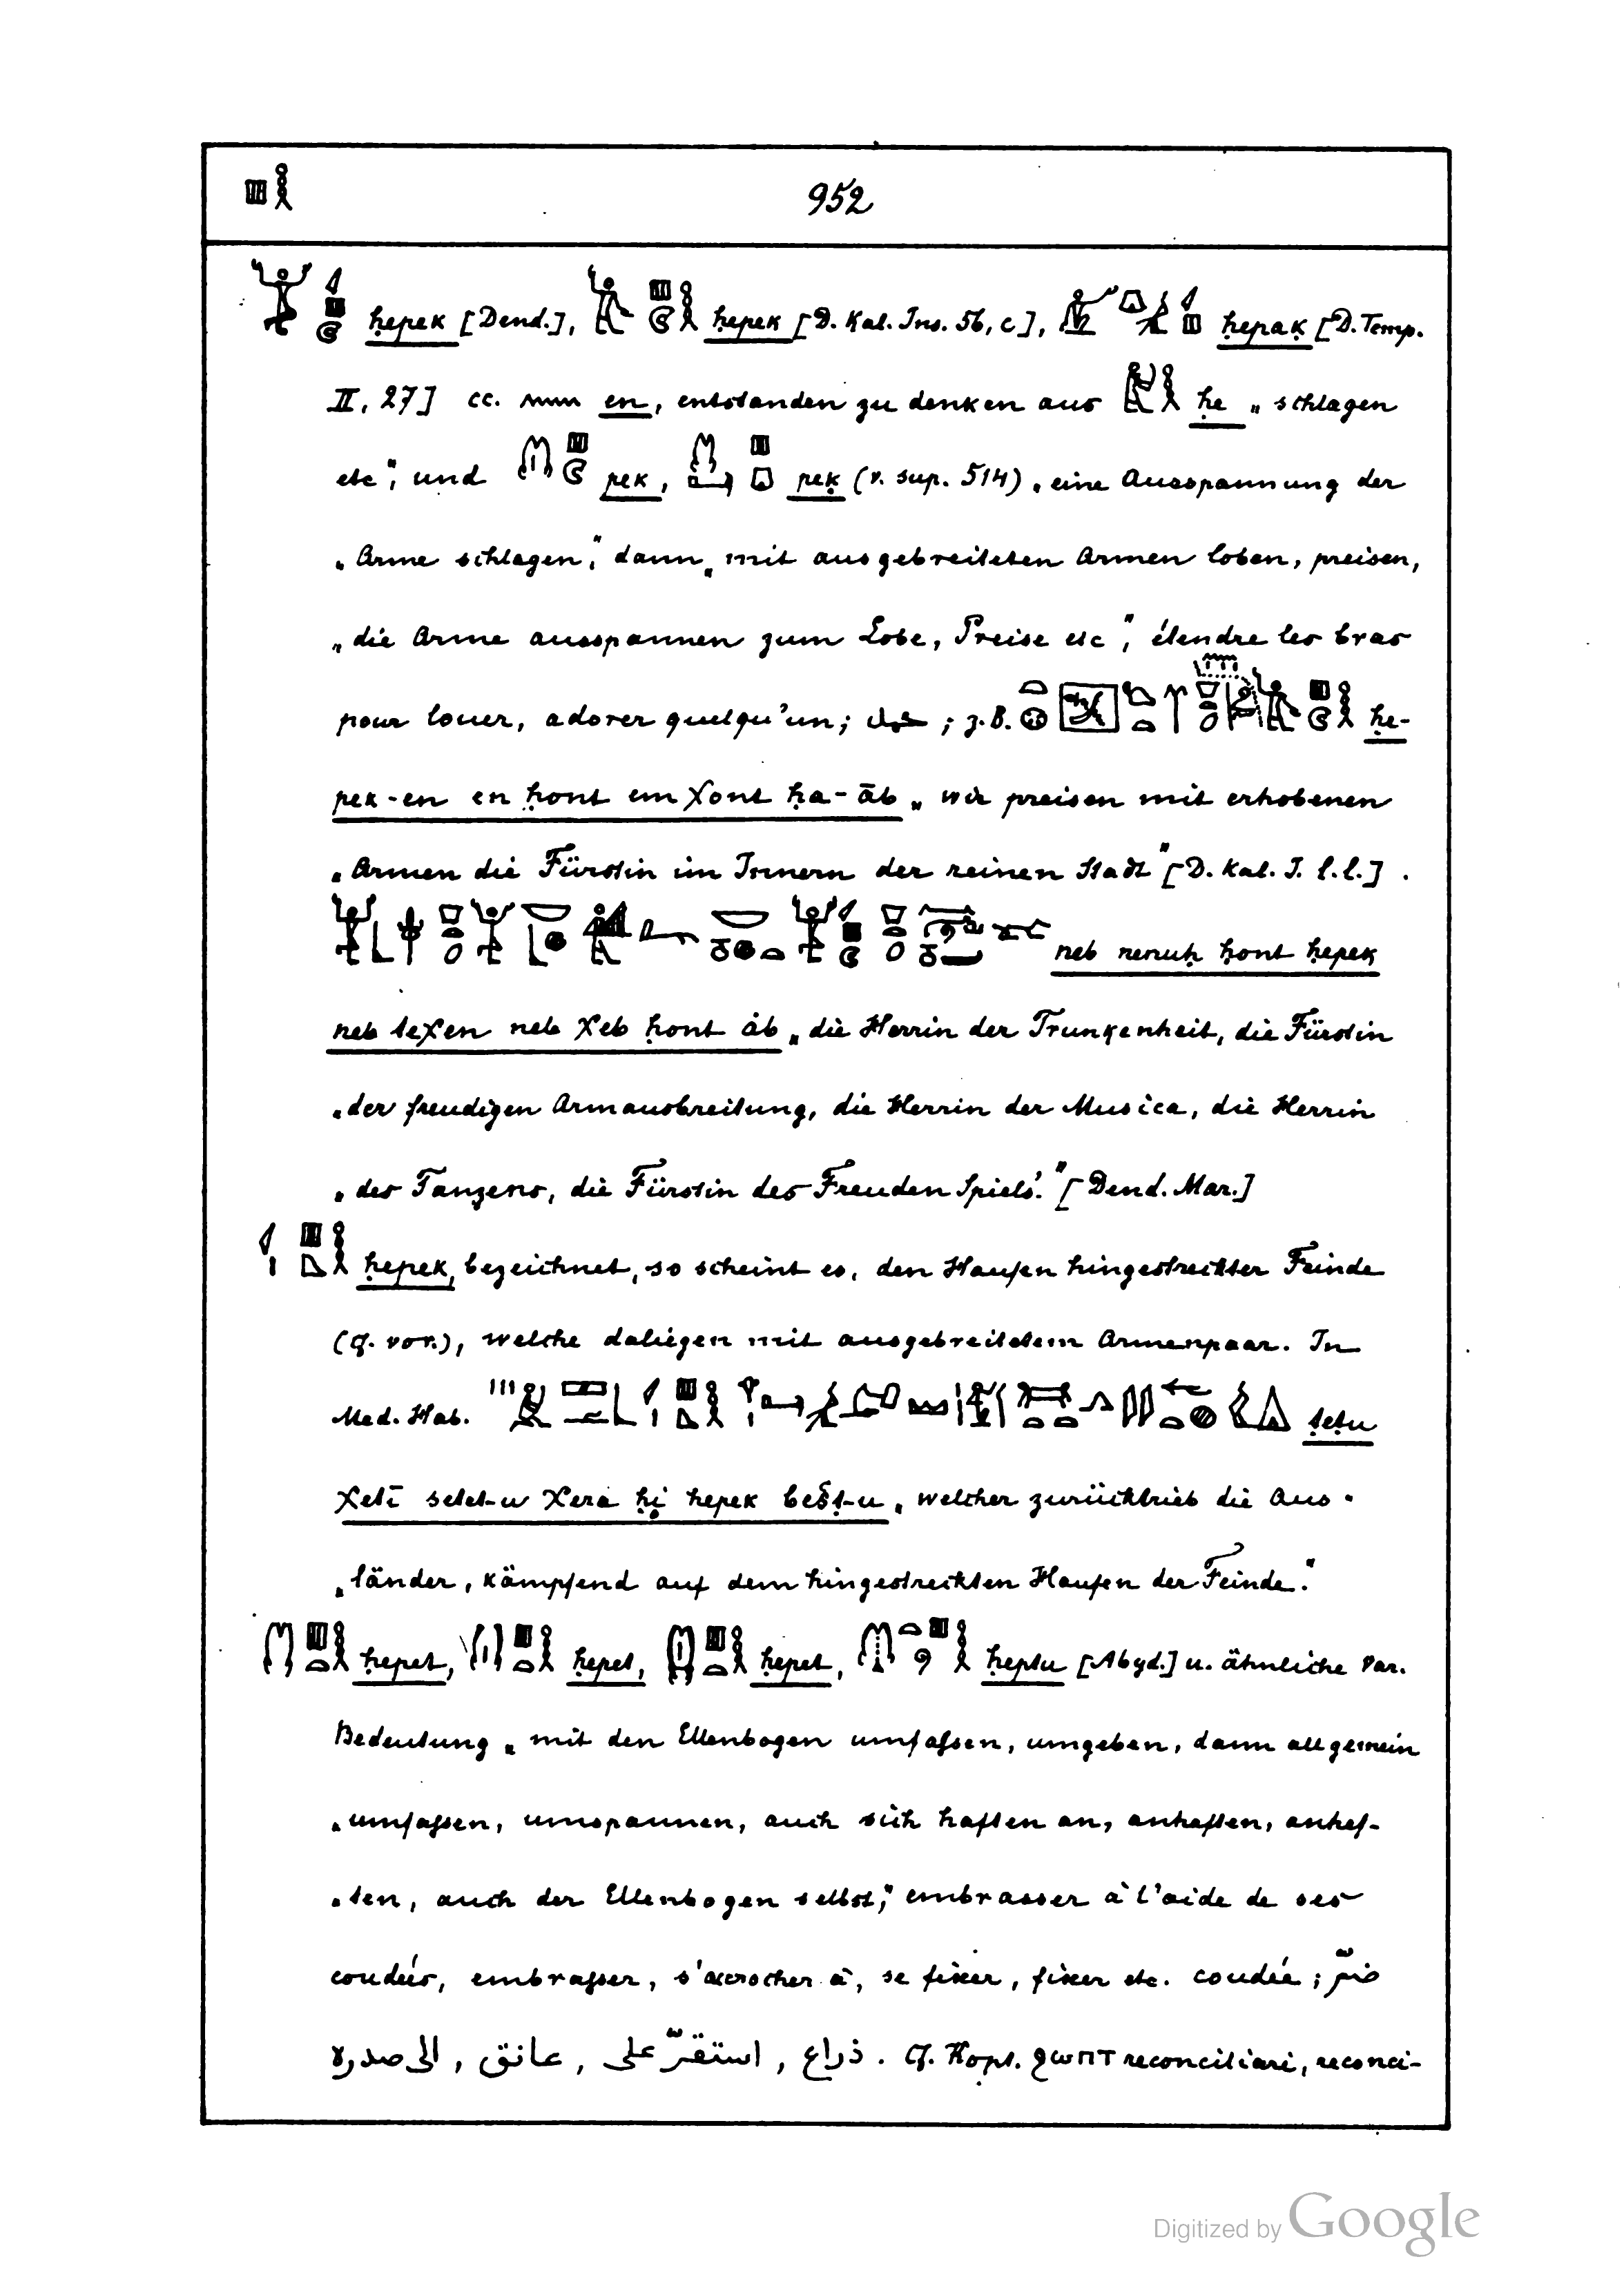 952
ḥepek [Dend.], ḥepek [D. Kal. Ins. 56, c], ḥepaḳ [D. Temp.
II, 27] cc. en, entstanden zu denken aus ḥe „schlagen
etc“, und pek, peḳ (v. sup. 514) „eine Ausspannung der
„Arme schlagen“, dann „mit ausgebreiteten Armen loben, preisen,
„die Arme ausspannen zum Lobe, Preise etc“, étendre les bras
pour louer, adorer quelqu'un; ; z. B. ḥe-
pek-en en ḥont em χont ḥa-āb „wir preisen mit erhobenen
„Armen die Fürstin im Innern der reinen Stadt“ [D. Kal. I. l. l.].
neb nenuḥ ḥont ḥepek
neb teχen neb χeb ḥont áb „die Herrin der Trunkenheit, die Fürstin
„der freudigen Armausbreitung, die Herrin der Musica, die Herrin
„des Tanzens, die Fürstin des Freuden Spiels“. [Dend. Mar.]
ḥepek, bezeichnet, so scheint es, den Haufen hingestreckter Feinde
(cf. vor.), welche daliegen mit ausgebreitetem Armenpaar. In
Med. Hab. ṭeṭu
χetī setet-u χera ḥi ḥepek bešṭ-u „welcher zurücktrieb die Aus-
„länder, kämpfend auf dem hingestreckten Haufen der Feinde.“
ḥepet, ḥepet, ḥepet, ḥeptu [Abyd.] u. ähnliche Var.
Bedeutung „mit den Ellenbogen umfassen, umgeben, dann allgemein
„umfassen, umspannen, auch sich haften an, anhaften, anhef-
„ten, auch der Ellenbogen selbst“, embrasser à l'aide de ses
coudées, embrasser, s'accrocher à, se fixer, fixer etc. coudée; ضمّ
الى صدره , عانق , استقرّ على , ذراع . Cf. Kopt. ϩωπτ reconciliari, reconci-
Digitized by Google